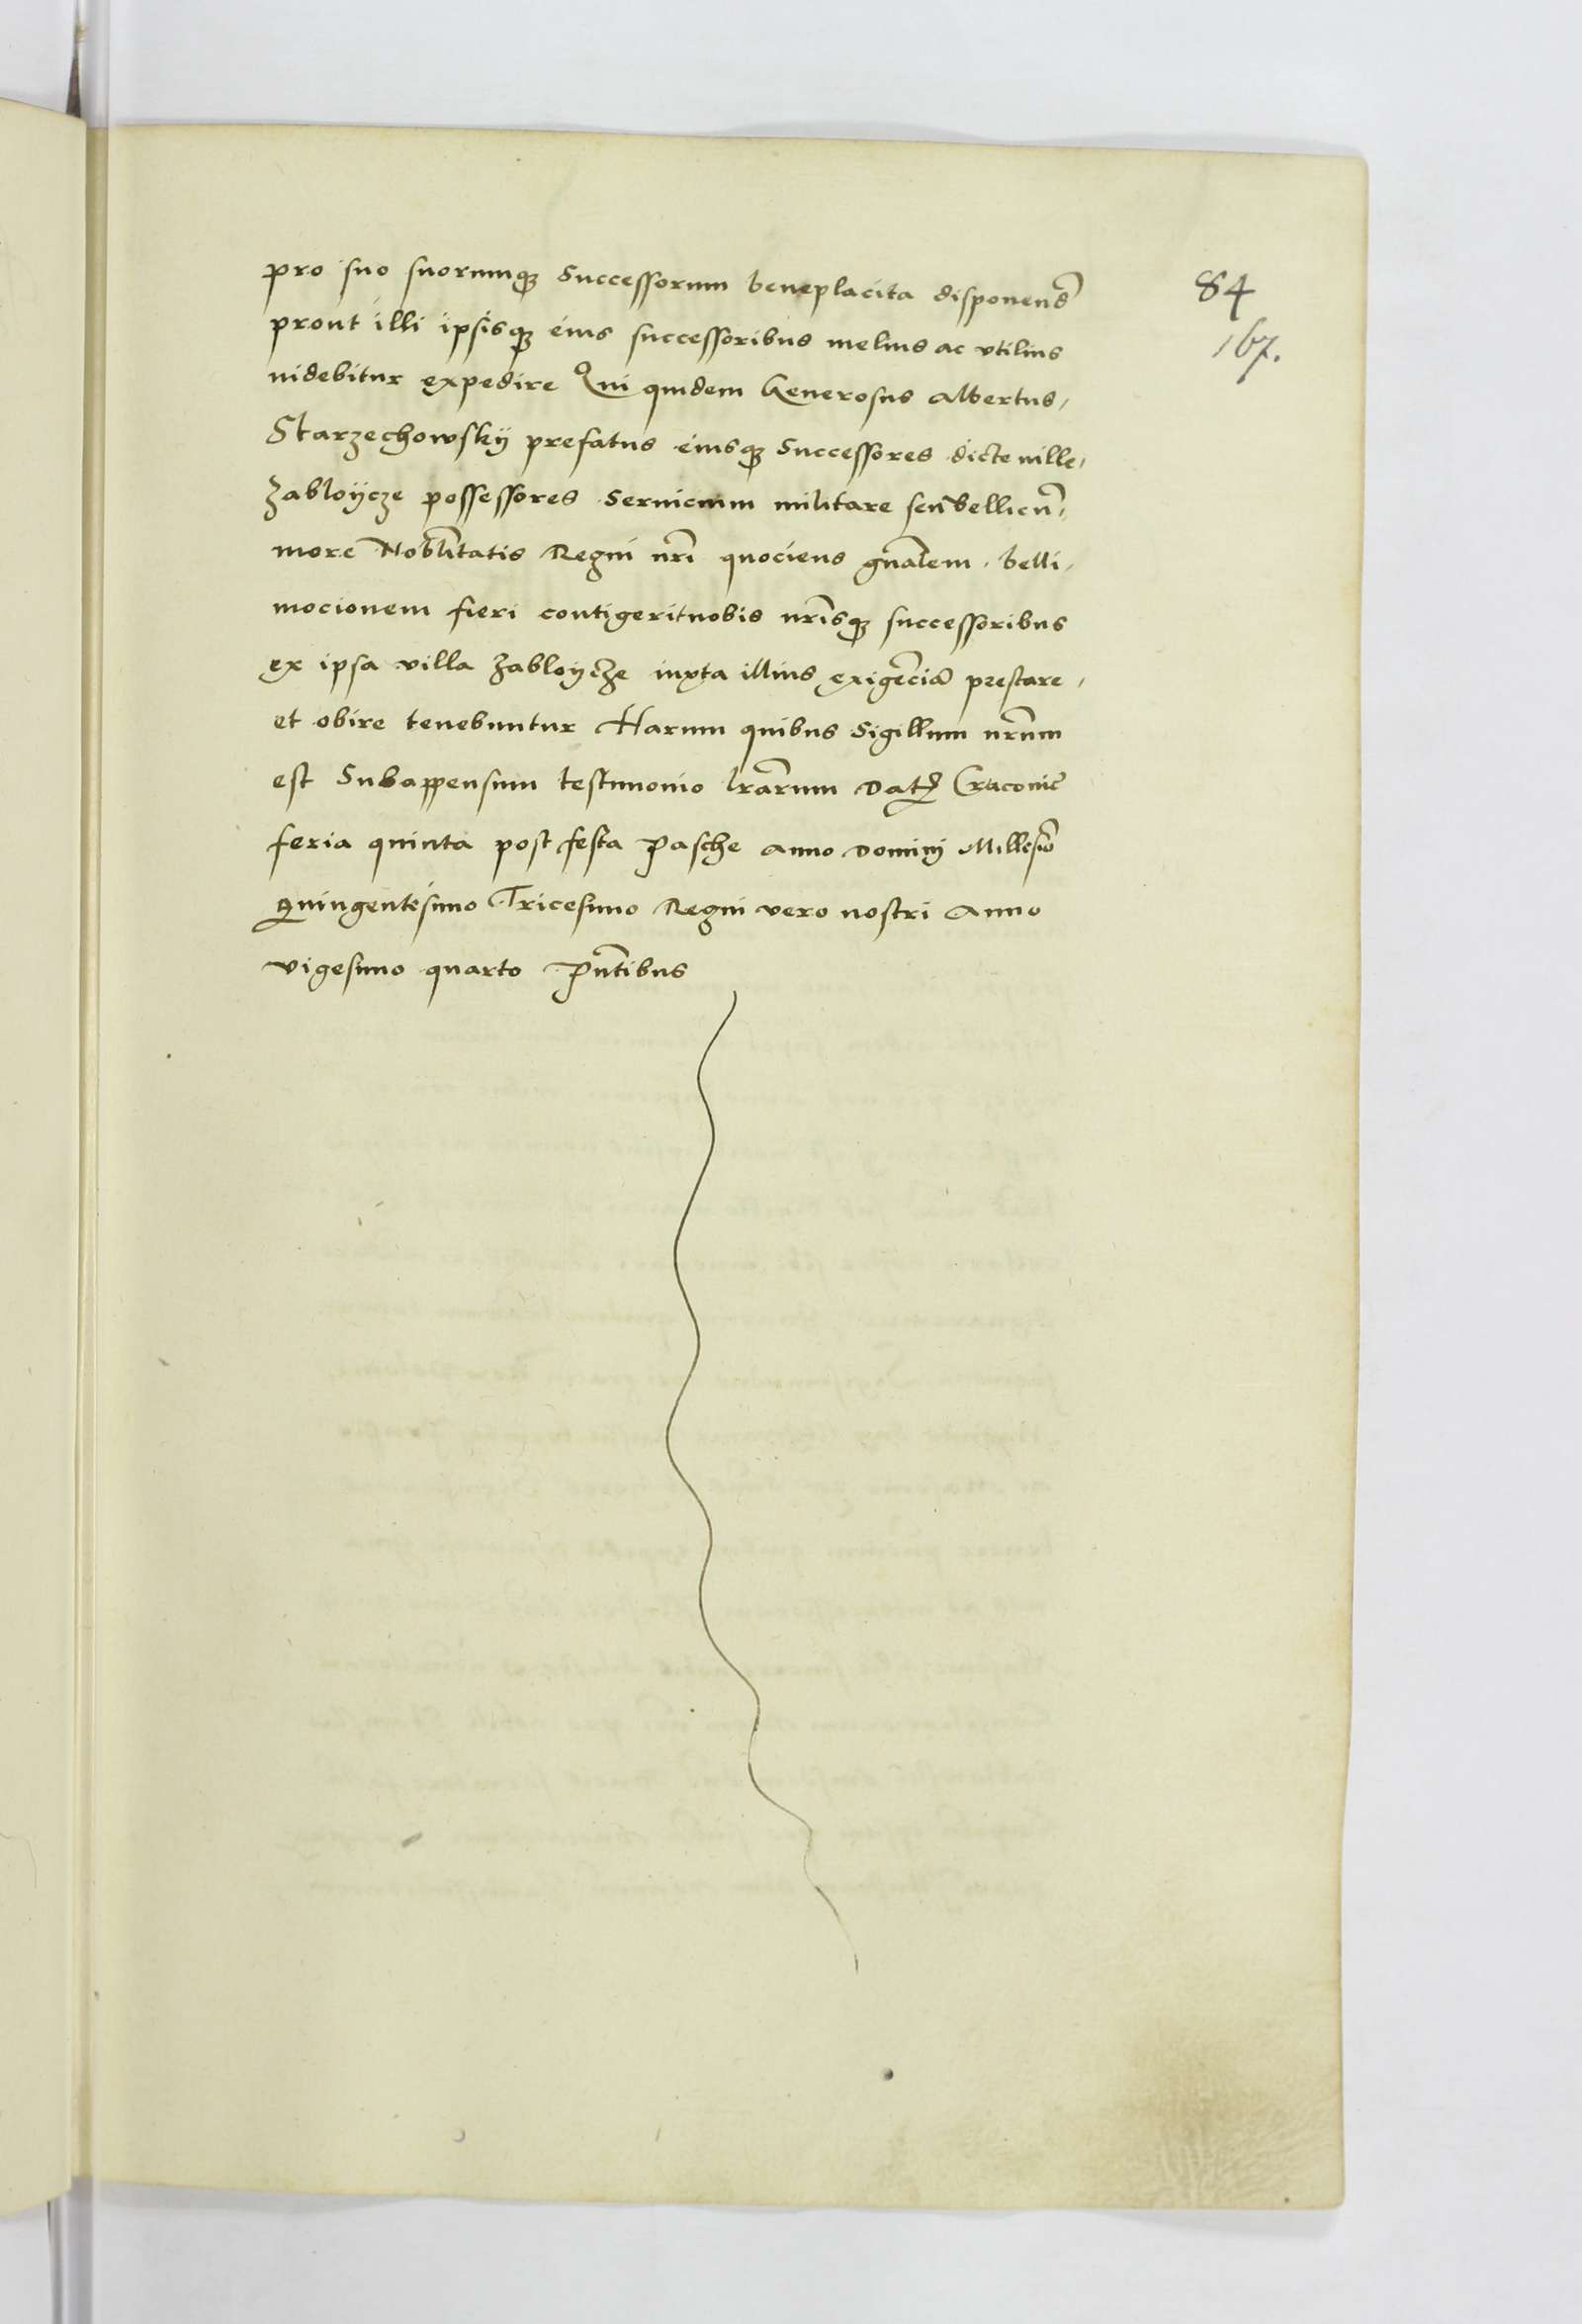 pro suo suorumq3 Successorum beneplacita disponend̄
84
prout illi ipsisq3 eius successoribus melius ac vtilius
167.
uidebitur expedire Qui quidem Generosus Albertus,
Starzechowskÿ prefatus eiusq3 Successores dicte uille,
Zabloÿcze possessores Seruicium militare seu bellicū,
more Nobl̄itatis Regni nr̄i quociens gn̄alem belli,
mocionem fieri contigerit nobis nr̄isq3 successoribus
ex ipsa villa Zabloÿcze iuxta illius exigēciā prestare,
et obire tenebuntur Harum quibus Sigillum nr̄um
est Subappensum testimonio lr̄arum Dat Cracouie
feria quinta post festa Pasche Anno Dominj Millesīo
Quingentesimo Tricesimo Regni vero nostri Anno
vigesimo quarto Pn̄tibus